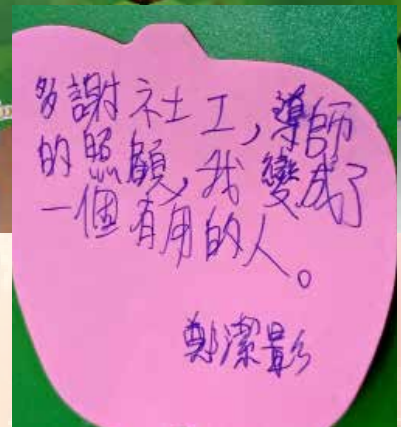 多謝社工,導師
的照顧,我變成了
一個有用的人。
鄭潔影